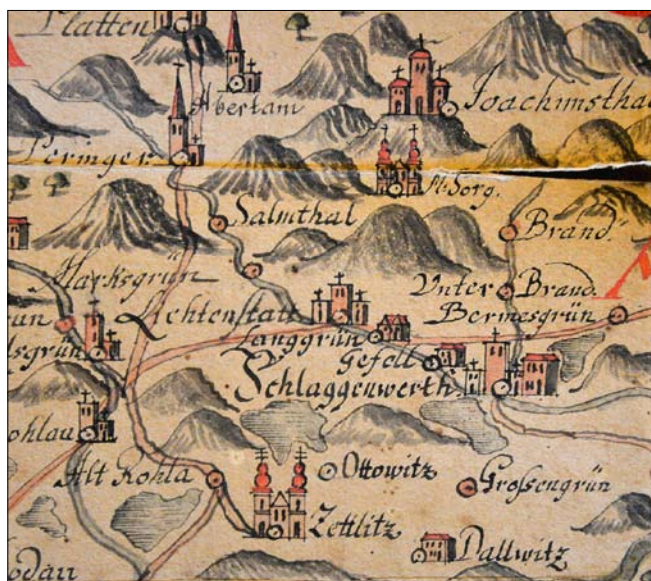 Platten
Abertam
Joachimsthal
Peringer
M: Sorg.
Salmthal
Brand
Harksgrün
Unter Brand
Lichtenstatt
Bermesgrün
Langgrün
Gefell
Schlaggenwerth
ohlau
Alt Rohla
Ottowitz
Grossengrün
Zettlitz
Dallwitz
odau